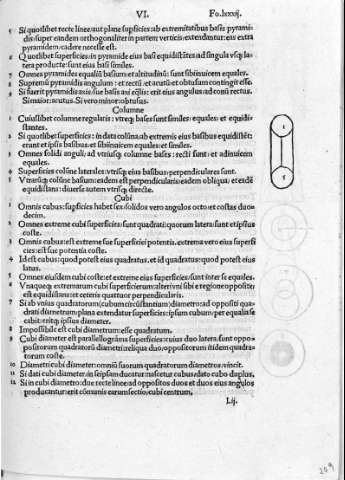 VI. Fo.lxxij.
5 Si quotlibet recte linee aut plane supficies: ab extremitatibus basis pyrami-
dis: super eandem orthogonaliter in partem verticis extendantur: eas extra
pyramidem cadere necesse est.
6 Quotlibet superficies: in pyramide eius basi equidistātes: ad singula vsqȝ la-
tera producte: sunt eius basi similes.
7 Omnes pyramides equaliū basium: et altitudinū: sunt sibiinuicem equales.
8 Supremū pyramidis angulum: et rectū: et acutū: et obtusam contingit esse.
9 Si fuerit pyramidis axis: sue basis axi eqlis: erit eius angulus ad conū rectus.
Si maior: acutus. Si vero minor: obtusus.
Columne
1 Cuiuslibet columne regularis: vtreqȝ bases sunt similes: equales: et equidi-
stantes.
2 Si quotlibet superficies: in data colūna: ab extremis eius basibus equidistēt:
erant et ipsis basibus: et sibiinuicem equales: et similes.
3 Omnes solidi anguli: ad vtriusqȝ columne bases: recti sunt: et adinuicem
equales.
4 Superficies colūne laterales: vtrisqȝ eius basibus: perpendiculares sunt.
5 Vtrarūqȝ colūne basium: eidem est perpendicularis: eadem obliqua: et eodē
equidistans: diuerse autem vtrisqȝ directe.
Cubi
1 Omnis cubus: supficies habet sex: solidos vero angulos octo: et costas duo-
decim.
2 Omnes extreme cubi superficies: sunt quadrati: quorum latera: sunt etipsius
coste.
3 Omnis cubus: est extreme sue superficiei potentia. extrema vero eius superfi
cies: est sue potentia coste.
4 Id est cubus: quod potest eius quadratus. et id quadratus: quod potest eius
latus.
5 Omnes eiusdem cubi coste: et extreme eius superficies: sunt inter se equales.
6 Vnaqueqȝ extremarum cubi superficierum: alteri vni sibi e regione opposite:
est equidistans: et ceteris quattuor perpendicularis.
7 Si ab vnius quadratorum (cubum circūstantium) diametro: ad oppositi qua-
drati diametrum: plana extendatur superficies: ipsum cubum: per equalia se
cabit: eritqȝ ipsius diameter.
8 Impossibile est cubi diametrum: esse quadratum.
9 Cubi diameter est parallelogrāma superficies: cuius duo latera: sunt oppo-
positorum quadratorū diametri: reliqua duo: oppositorum itidem quadra-
torum coste.
10 Diametri cubi diameter: omniū suorum quadratorum diametros: vincit.
11 Si dati cubi diameter: in seipsum ducatur: nascetur cubus: dato cubo duplus.
12 Si in cubi diametro: due recte linee ad oppositos duos et duos eius angulos
producantur: erit cōmunis earum sectio: cubi centrum.
L iij.
1
5
209